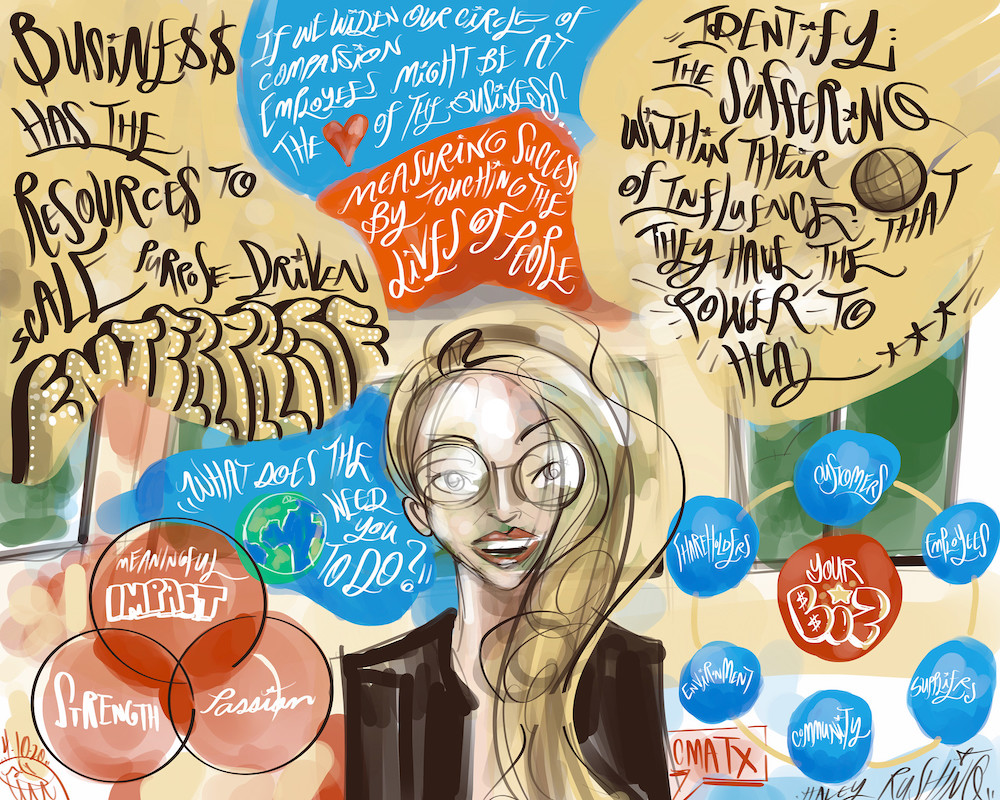 BUSINE$$
HAS THE
RESOURCE$ TO
SCALE PURPOSE-DRIVEN
ENTERPRISE
IF WE WIDEN OUR CIRCLE OF
COMPASSION
EMPLOYEES MIGHT BE AT
THE OF THE BUSINESS...
MEASURING SUCCESS
BY TOUCHING THE
LIVES OF PEOPLE
IDENTIFY:
THE SUFFERING
WITHIN THEIR
OF INFLUENCE: THAT
THEY HAVE THE
POWER TO
HEAL
"WHAT DOES THE
NEED
YOU
TO DO?"
MEANINGFUL
IMPACT
STRENGTH
Passion
CUSTOMERS
SHAREHOLDERS
EMPLOYEES
YOUR
BIZ
ENVIRNMENT
SUPPLIERS
COMMUNITY
CMATX
HALEY RUSHING